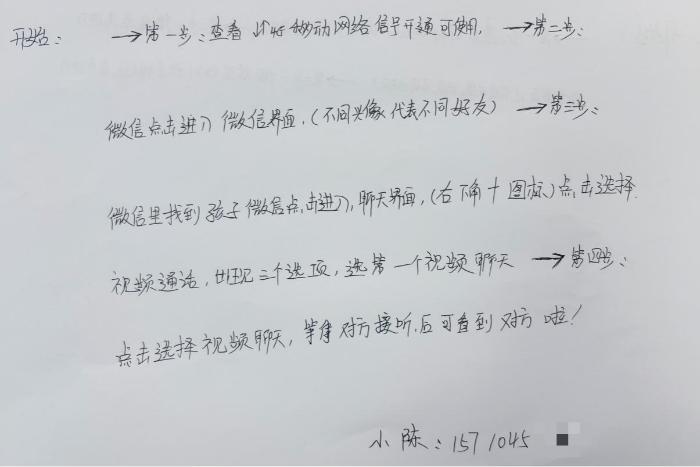 开始：→第一步：查看此时移动网络信号开通可使用，→第二步：
微信点击进入微信界面，（不同头像代表不同好友）→第三步：
微信里找到孩子微信点击进入，聊天界面，（右下角十图标）点击选择
视频通话，出现三个选项，选第一个视频聊天→第四步：
点击选择视频聊天，等待对方接听后可看到对方啦！
小陈：1571045